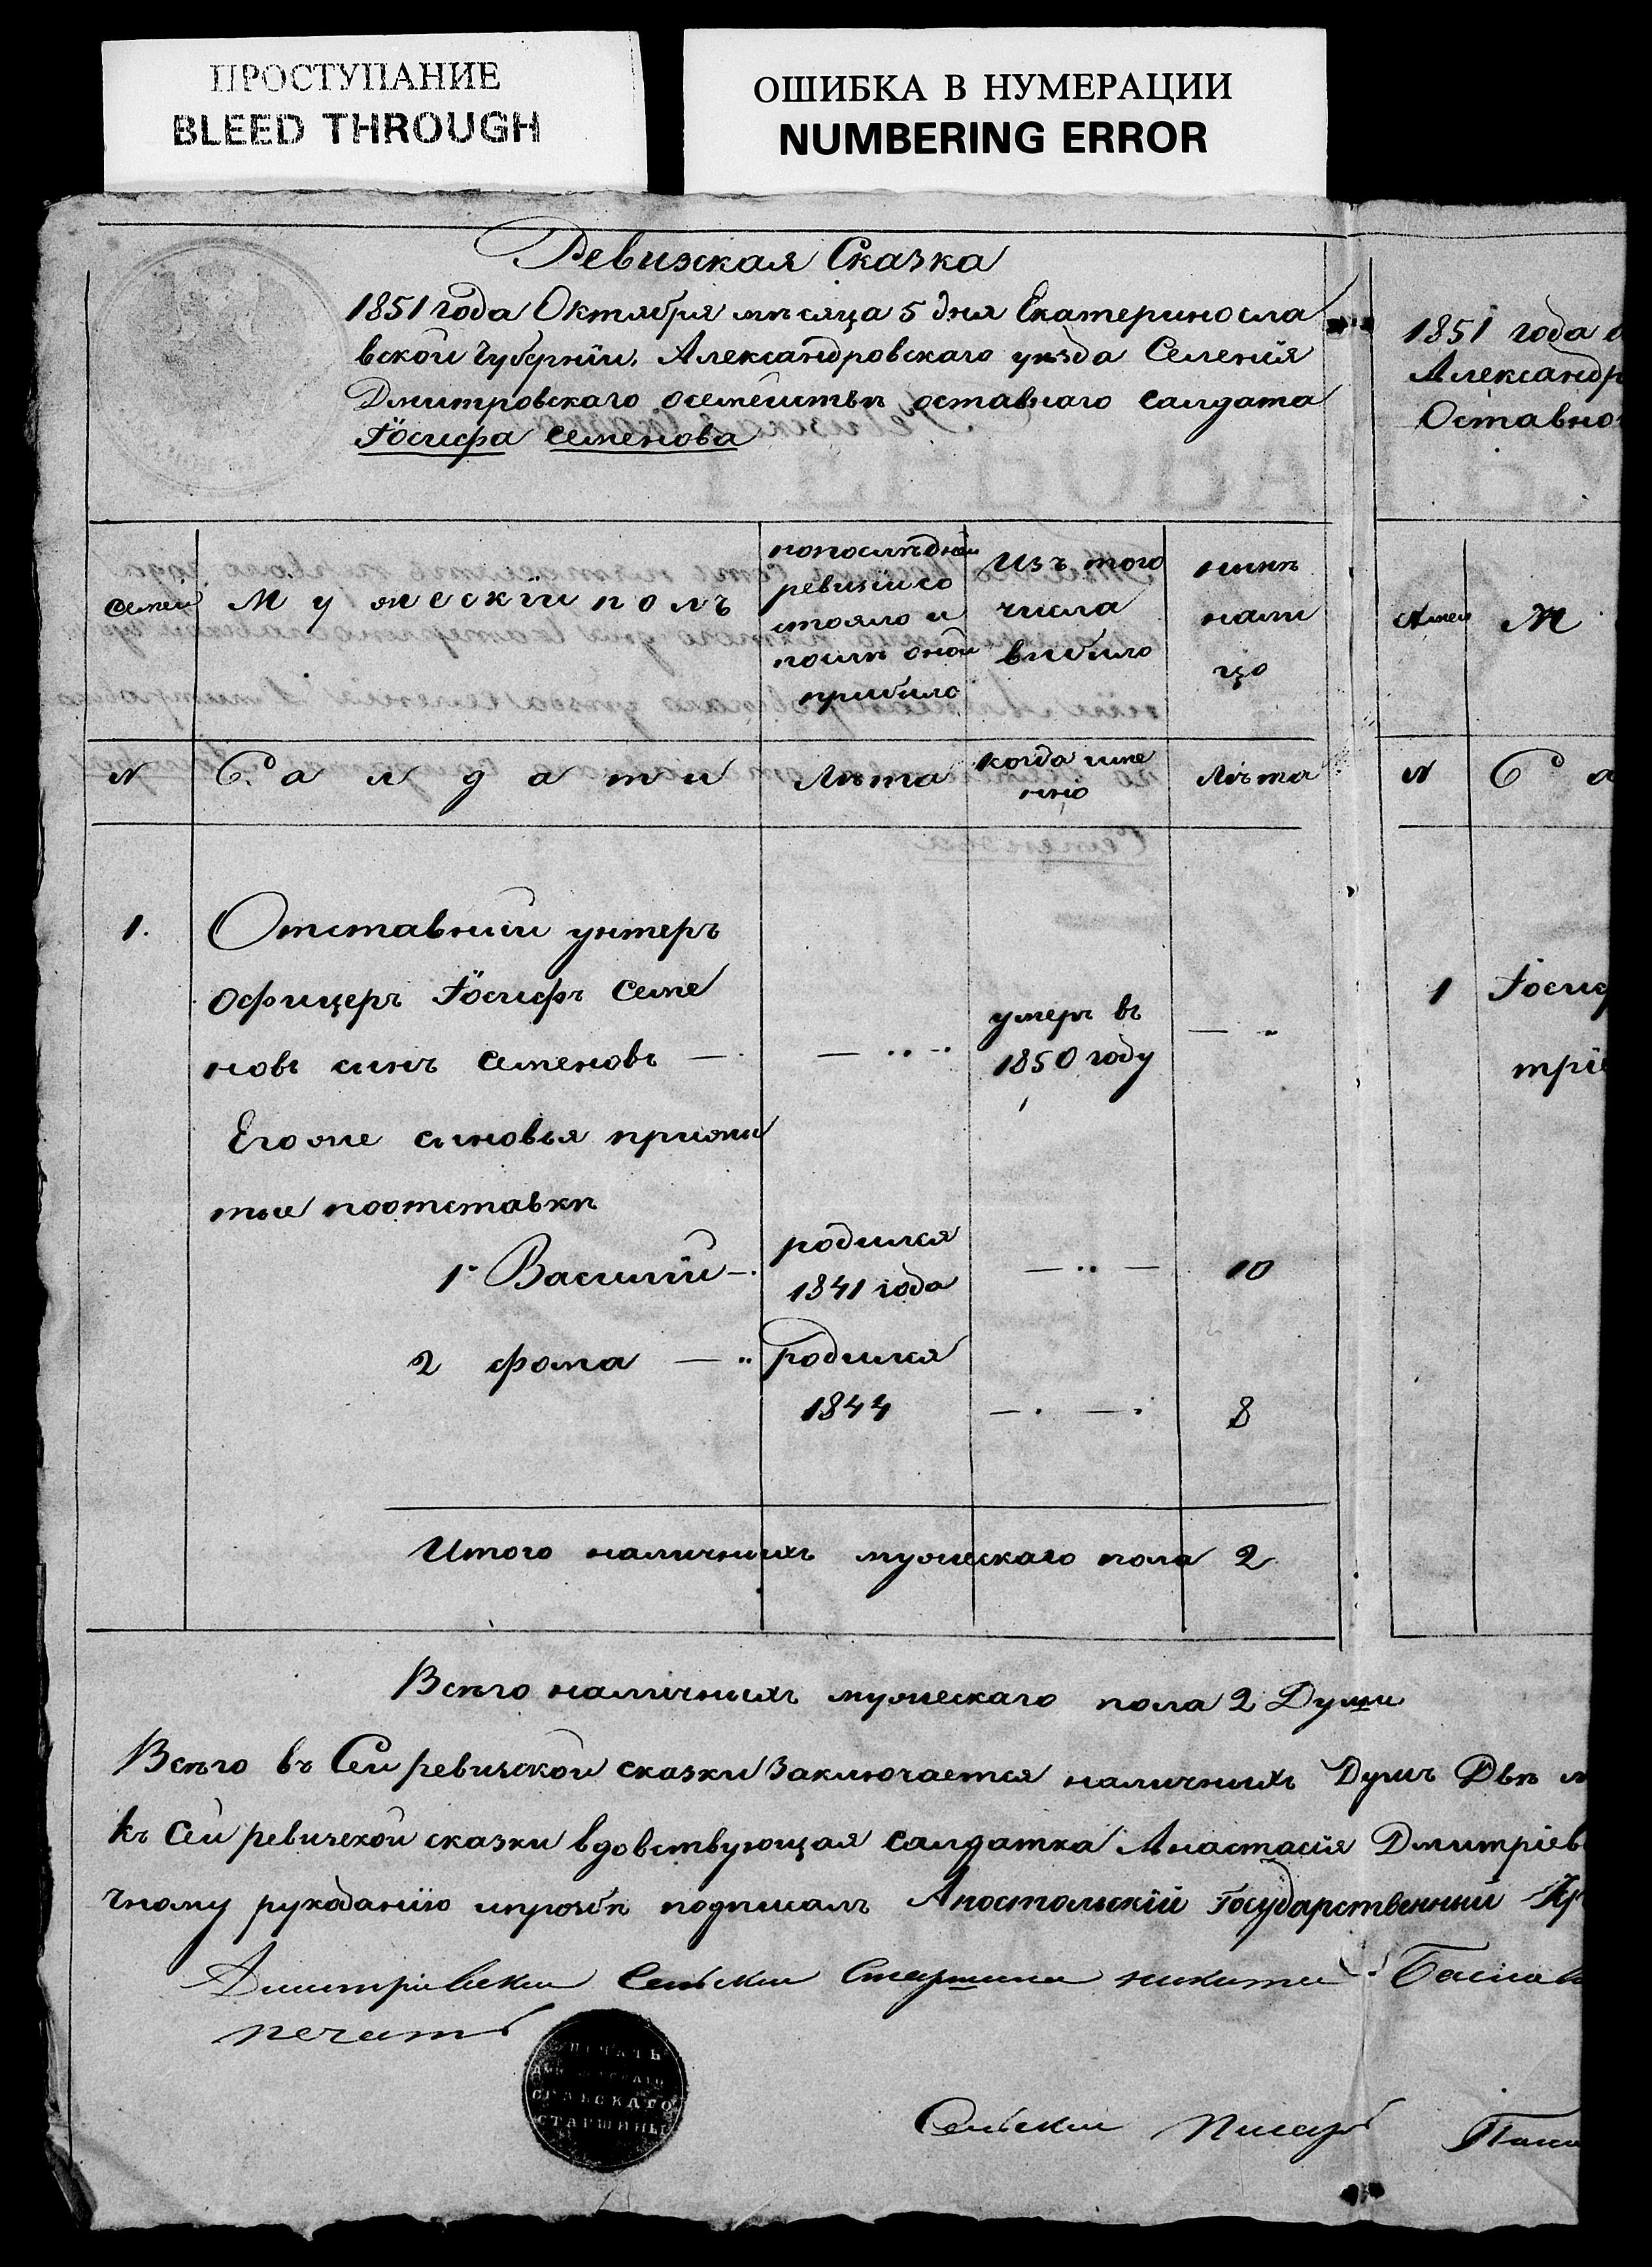 ПРОСТУПАНИЕ
BLEED THROUGH
ОШИБКА В НУМЕРАЦИИ
NUMBERING ERROR
Ревизская Сказка
1851 года Октября мѣсяца 5 дня Екатериносла
вской Губернïи, Александровскаго уѣзда Селенïя
Дмитровскаго осемействѣ оставнаго салдата
Iосифа Семенова
Семеи
Мужескïи полъ
попослѣднеи
ревизïи со
стояло и
послѣ оной
прибило
Изъ того
числа
вибило
нинѣ
нали
цо
N
Салдати
Лѣта
когда име
нно
Лѣта
1.
Отставнии унтеръ
Офицеръ Iосифъ Семе
новъ синъ Семеновъ —
умеръ въ
1850 году
Егоже синовья прижи
тые поотставкѣ
1 Василïи
родился
1841 года
10
2 фома
родился
1844
8
Итого наличнихъ мужескаго пола 2
Всѣго наличныхъ мужескаго пола 2 Души
Всѣго въ Сеи ревизской сказки Заключается наличнихъ Душъ Двѣ
къ Сеи ревизской сказки вдовствующая салдатка Анастасïя Дмитрïев
чному рукоданïю ипрозбѣ подписалъ Апостольскïй Государственный Кр
Дмитрïвски Сельски Старшина никита Баслав
печать
ПЕЧАТЬ
СЕЛЬСКАГО
СТАРШИНЫ
Сельски Писарь
1851 года
Александр
Оставно
Семеи
М
N
С а
1
Iосиф
трïе